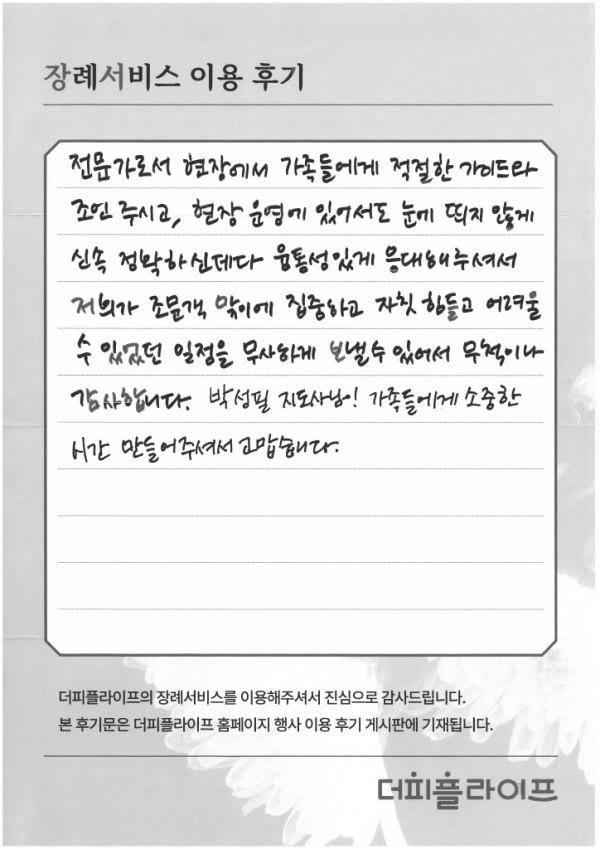 장례서비스 이용 후기
전문가로서 현장에서 가족들에게 적절한 가이드와
조언 주시고, 현장 운영에 있어서도 눈에 띄지 않게
신속 정확하신데다 융통성있게 응대해주셔서
저희가 조문객 맞이에 집중하고 자칫 힘들고 어려울
수 있었던 일정을 무사하게 보낼수 있어서 무척이나
감사합니다. 박성필 지도사님이! 가족들에게 소중한
시간 만들어주셔서 고맙습니다.
더피플라이프의 장례서비스를 이용해주셔서 진심으로 감사드립니다.
본 후기문은 더피플라이프 홈페이지 행사 이용 후기 게시판에 기재됩니다.
더피플라이프